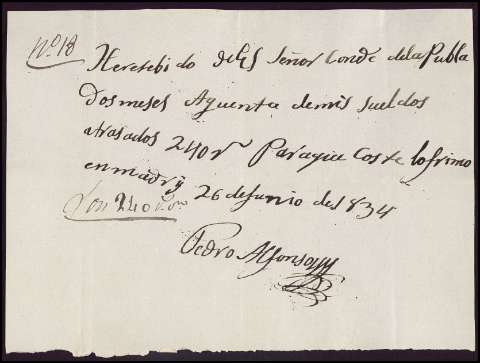 Nº 18
He resebi do del Sr Señor Conde dela Puebla
Dos meses Aquenta demis sueldos
atrasados 240 rs Paraque Coste lo firmo
en madrí 26 deJunio de 1834
Son 240 rs vn
Pedro Alfonso